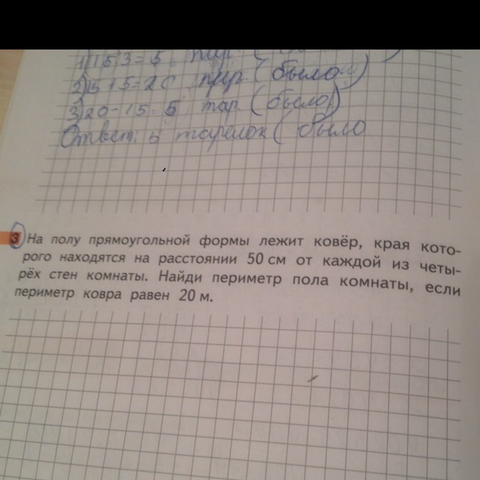 1) 15:3=5
2) 15+5=20 пир (было)
3) 20-15=5 тар (было)
Ответ: 5 тарелок (было
3 На полу прямоугольной формы лежит ковёр, края кото-
рого находятся на расстоянии 50 см от каждой из четы-
рёх стен комнаты. Найди периметр пола комнаты, если
периметр ковра равен 20 м.